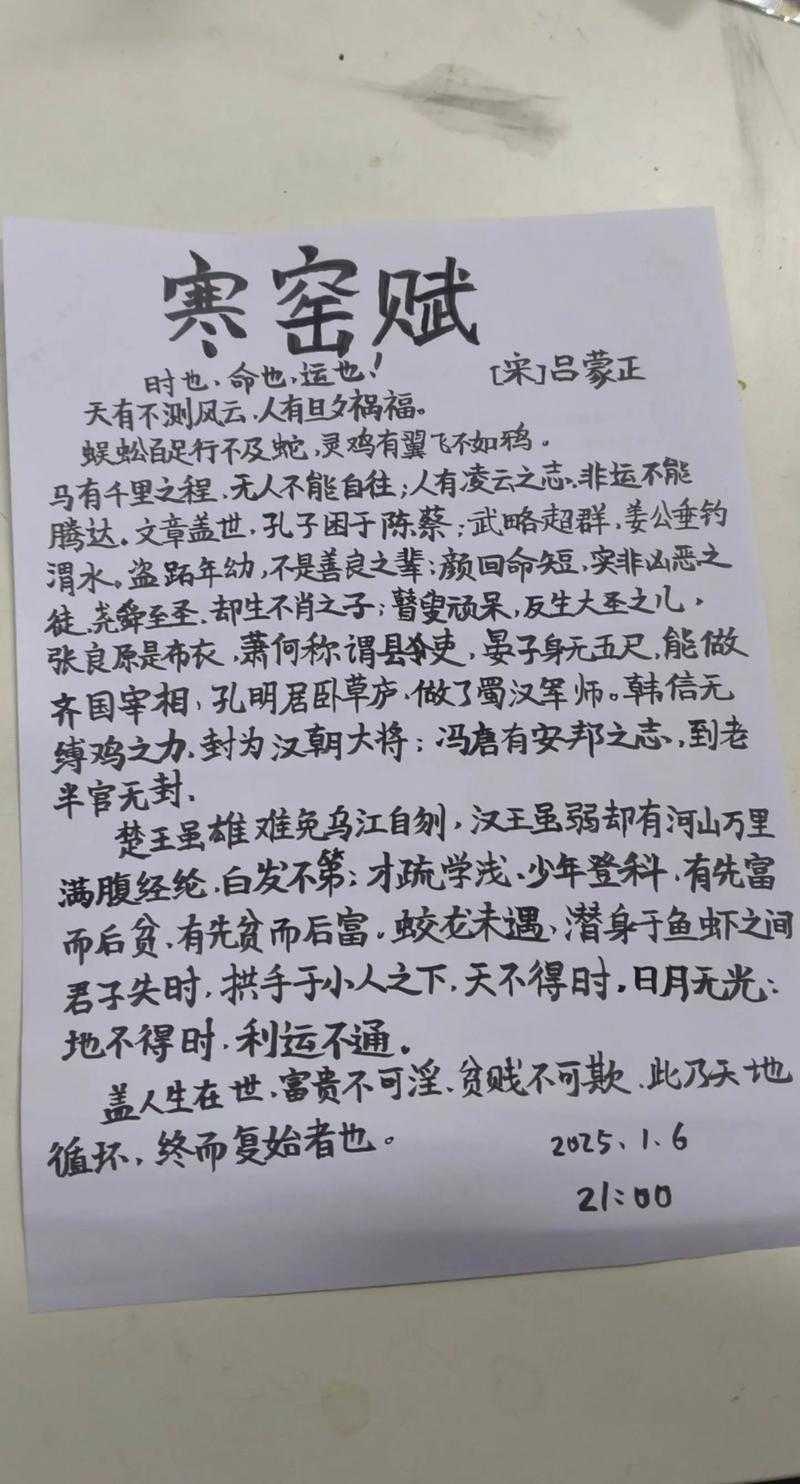 寒窑赋
时也，命也，运也！ [宋]吕蒙正
天有不测风云，人有旦夕祸福。
蜈蚣百足行不及蛇，灵鸡有翼飞不如鸦。
马有千里之程，无人不能自往；人有凌云之志，非运不能
腾达。文章盖世，孔子困于陈蔡；武略超群，姜公垂钓
渭水。盗跖年幼，不是善良之辈；颜回命短，实非凶恶之
徒，尧舜至圣，却生不肖之子；瞽叟顽呆，反生大圣之儿，
张良原是布衣，萧何称谓县吏，晏子身无五尺，能做
齐国宰相，孔明居卧草庐，做了蜀汉军师。韩信无
缚鸡之力，封为汉朝大将；冯唐有安邦之志，到老
半官无封，
楚王虽雄难免乌江自刎，汉王虽弱却有河山万里
满腹经纶，白发不第；才疏学浅，少年登科，有先富
而后贫，有先贫而后富。蛟龙未遇，潜身于鱼虾之间
君子失时，拱手于小人之下，天不得时，日月无光；
地不得时，利运不通。
盖人生在世，富贵不可淫、贫贱不可欺，此乃天地
循环，终而复始者也。 2025、1、6
21：00